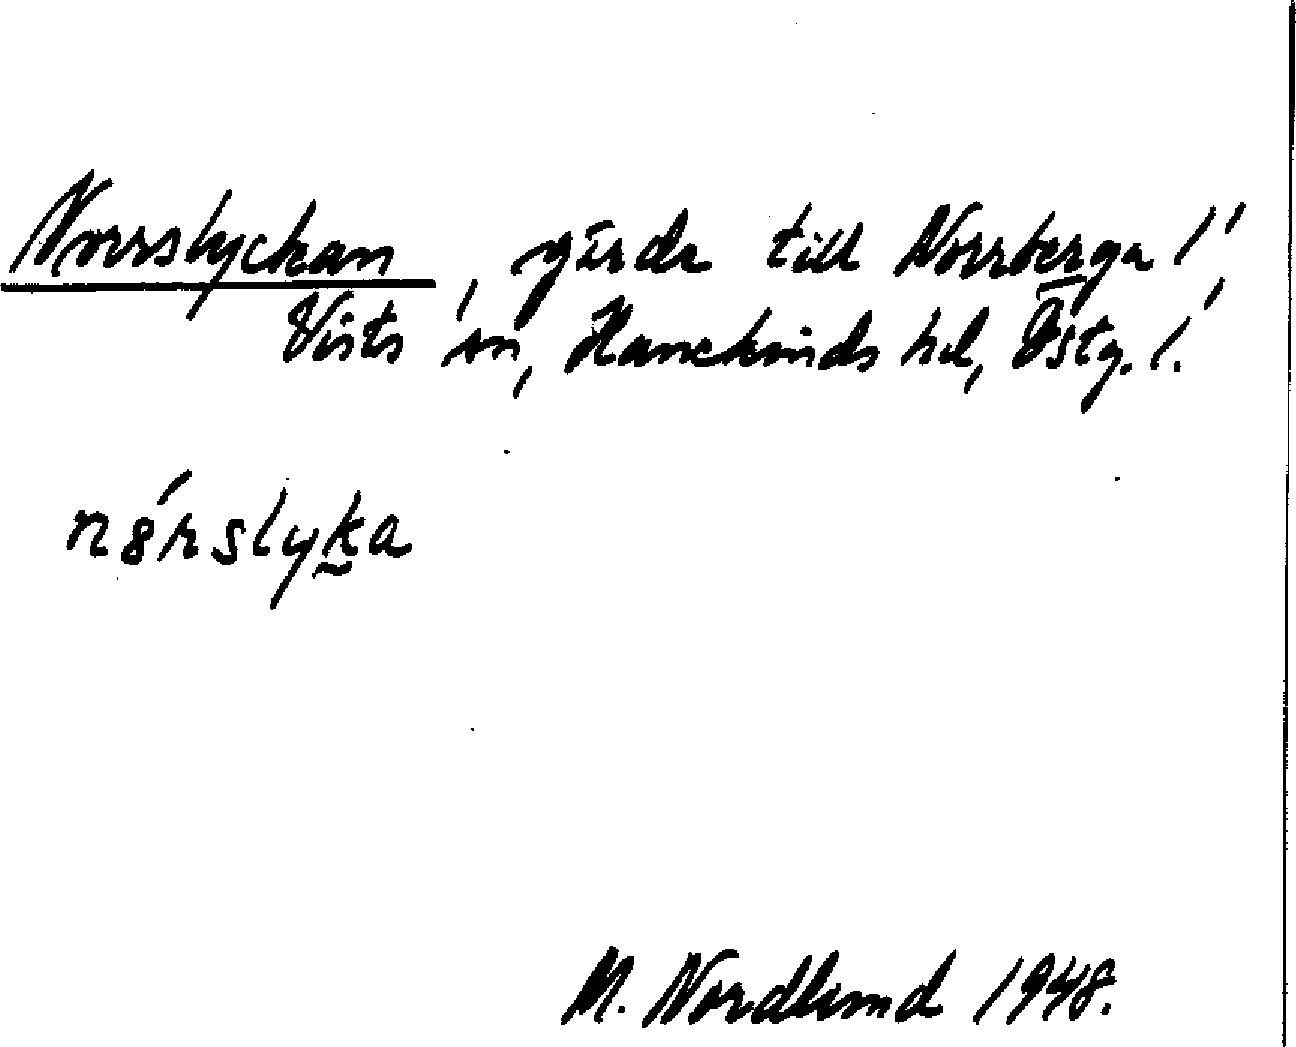 Norrslyckan, gärde till Norrberga 1/1,
Vists sn, Hanekinds hd, Östg. l.
nórslyka
M. Nordlund 1948.